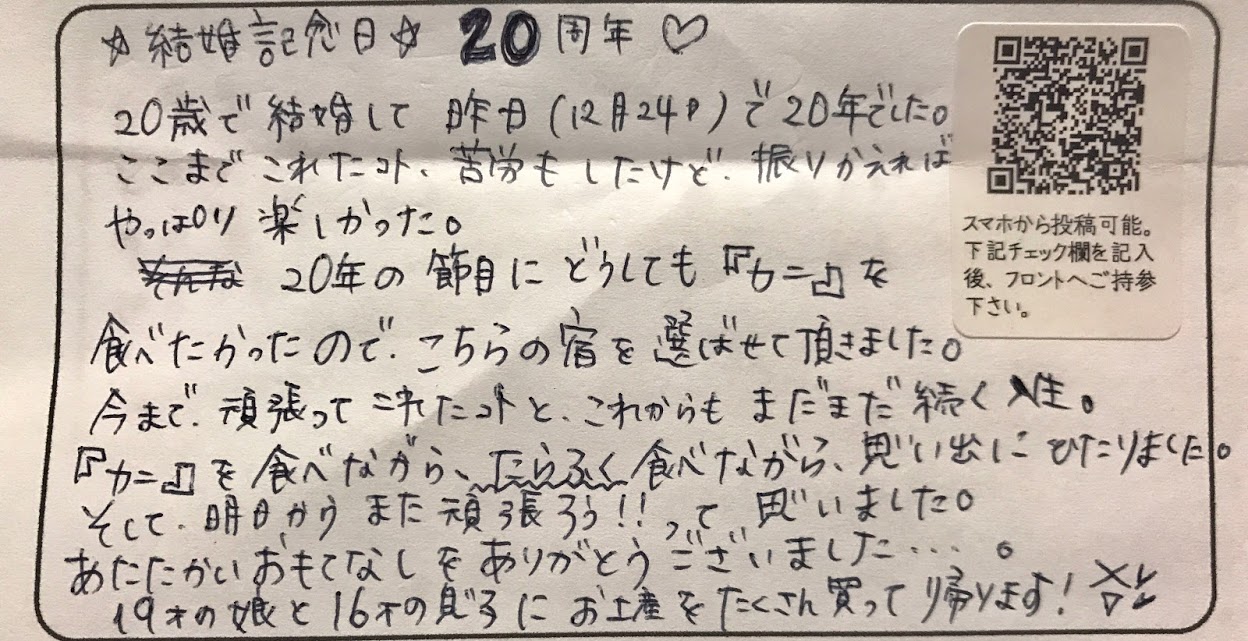 ☆結婚記念日☆ 20周年♡
20歳で結婚して 昨日(12月24日)で20年でした。
ここまでこれたコト、苦労もしたけど、振りかえれば
やっぱり楽しかった。
20年の節目にどうしても『カニ』を
食べたかったので、こちらの宿を選ばせて頂きました。
今まで、頑張ってこれたコトと、これからもまだまだ続く人生。
『カニ』を食べながら、たらふく食べながら、思い出にひたりました。
そして、明日からまた頑張ろう!!って思いました。
あたたかいおもてなしをありがとうございました…。
19才の娘と16才の息子にお土産をたくさん買って帰ります!
スマホから投稿可能。
下記チェック欄を記入
後、フロントへご持参
下さい。